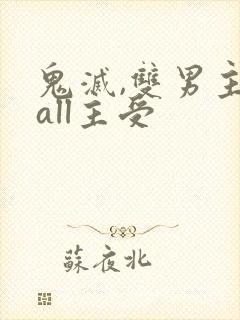 鬼滅,雙男主
all主受
蘇夜北